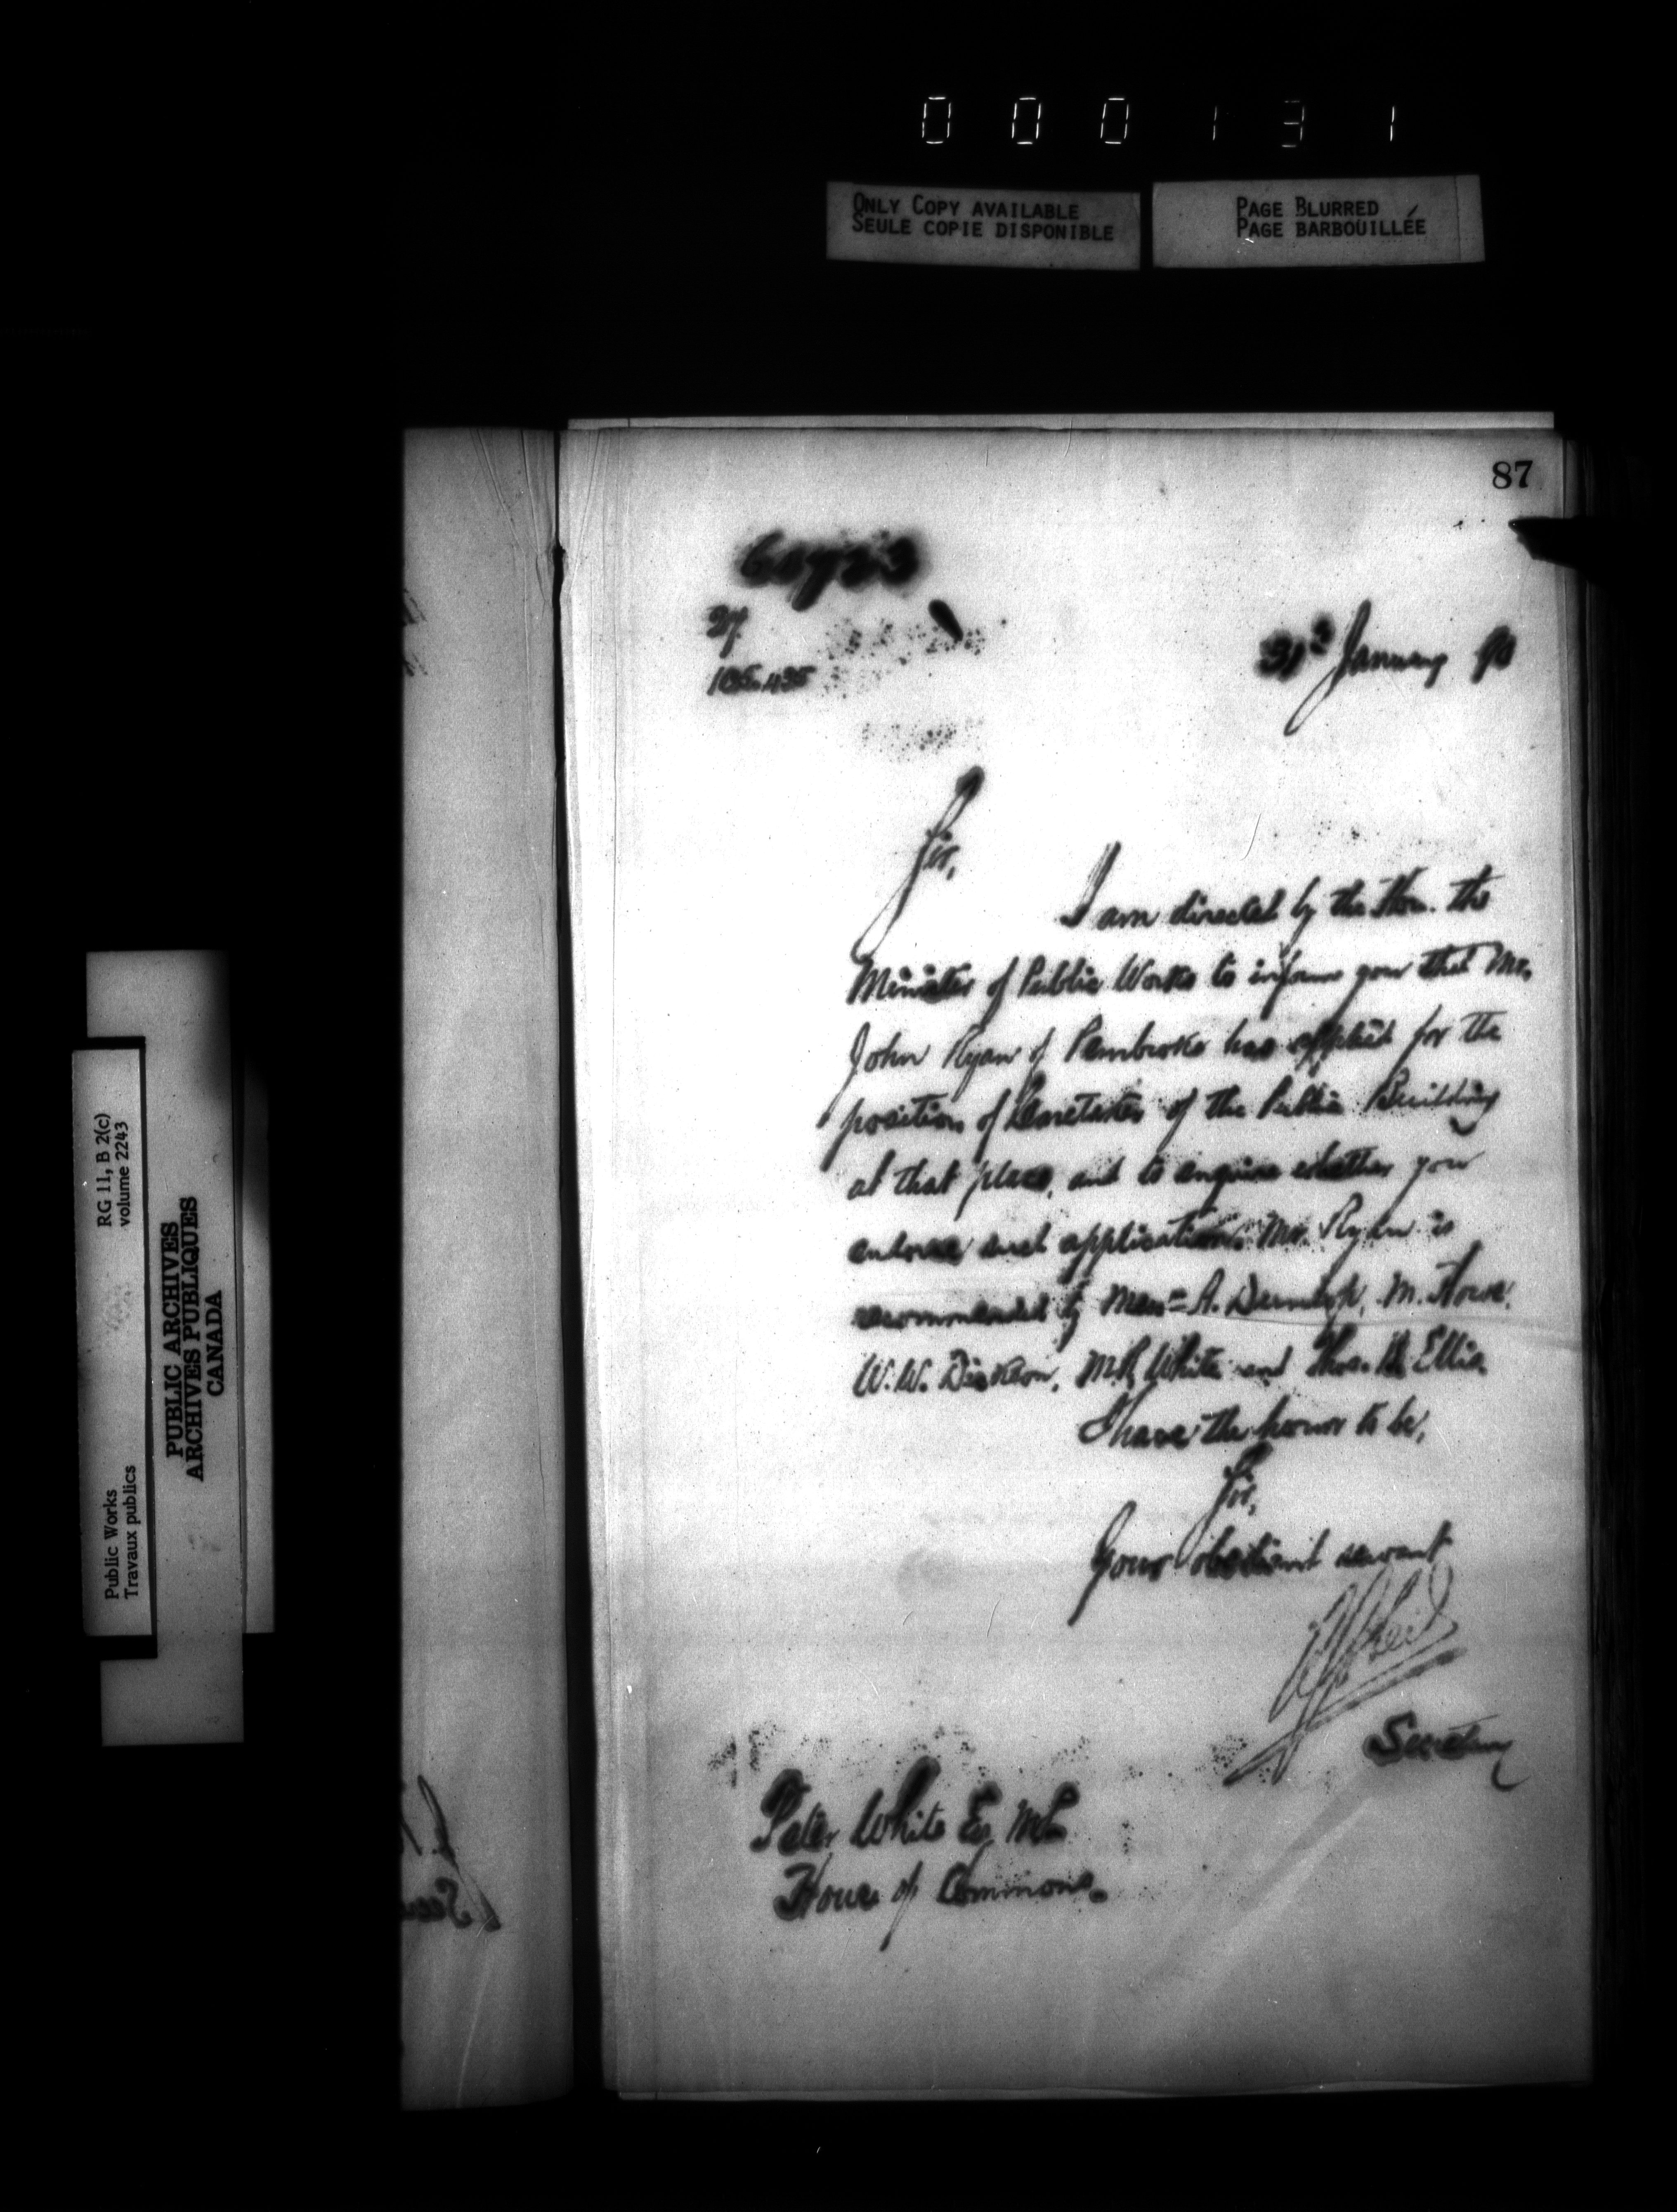 000131
ONLY COPY AVAILABLE
SEULE COPIE DISPONIBLE
PAGE BLURRED
PAGE BARBOUILLÉE
87
27
31st January 90
Sir,
I am directed by the Hon. the
Minister of Public Works to inform you that Mr.
John Ryan of Pembroke has applied for the
position of Caretaker of the Public Building
at that place, and to enquire whether you
endorse such application. Mr. Ryan is
recommended by Messrs A. M.
W.W. Dickson, White and Thos. Ellis.
I have the honor to be,
Sir,
Your obedient servant
Secretary
Peter White Esq MP
House of Commons.
RG 11, B 2(c)
volume 2243
Public Works
Travaux publics
PUBLIC ARCHIVES
ARCHIVES PUBLIQUES
CANADA